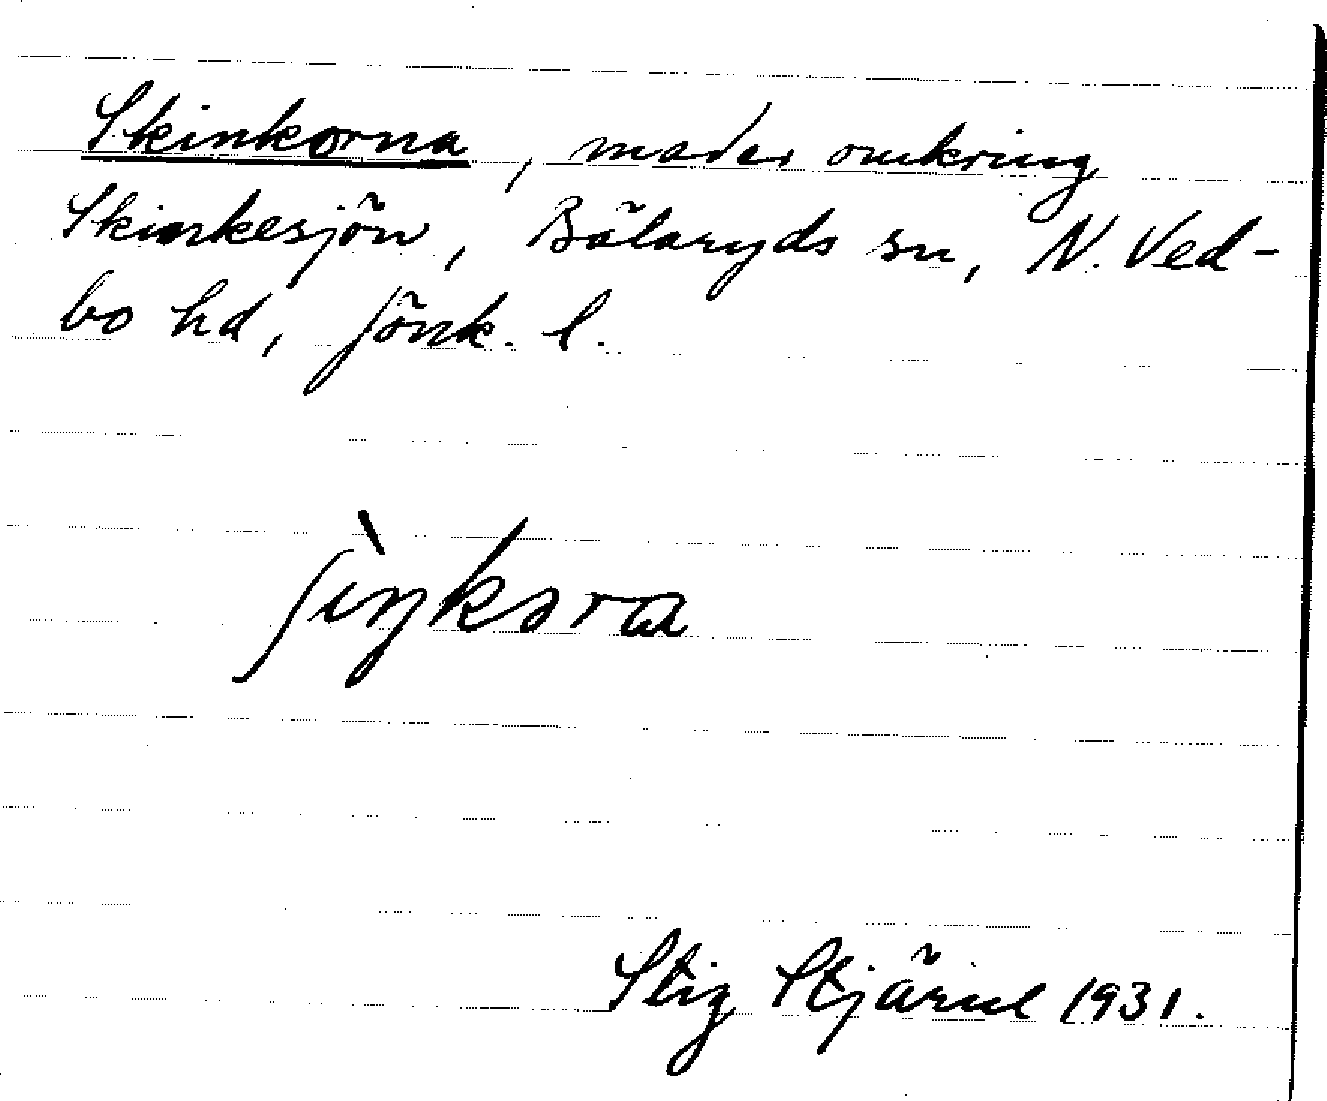 Skinkorna, mader omkring
Skinkesjön, Bälaryds sn, N. Ved-
bo hd, Jönk. l.
ʃìŋkora
Stig Stjärne 1931.